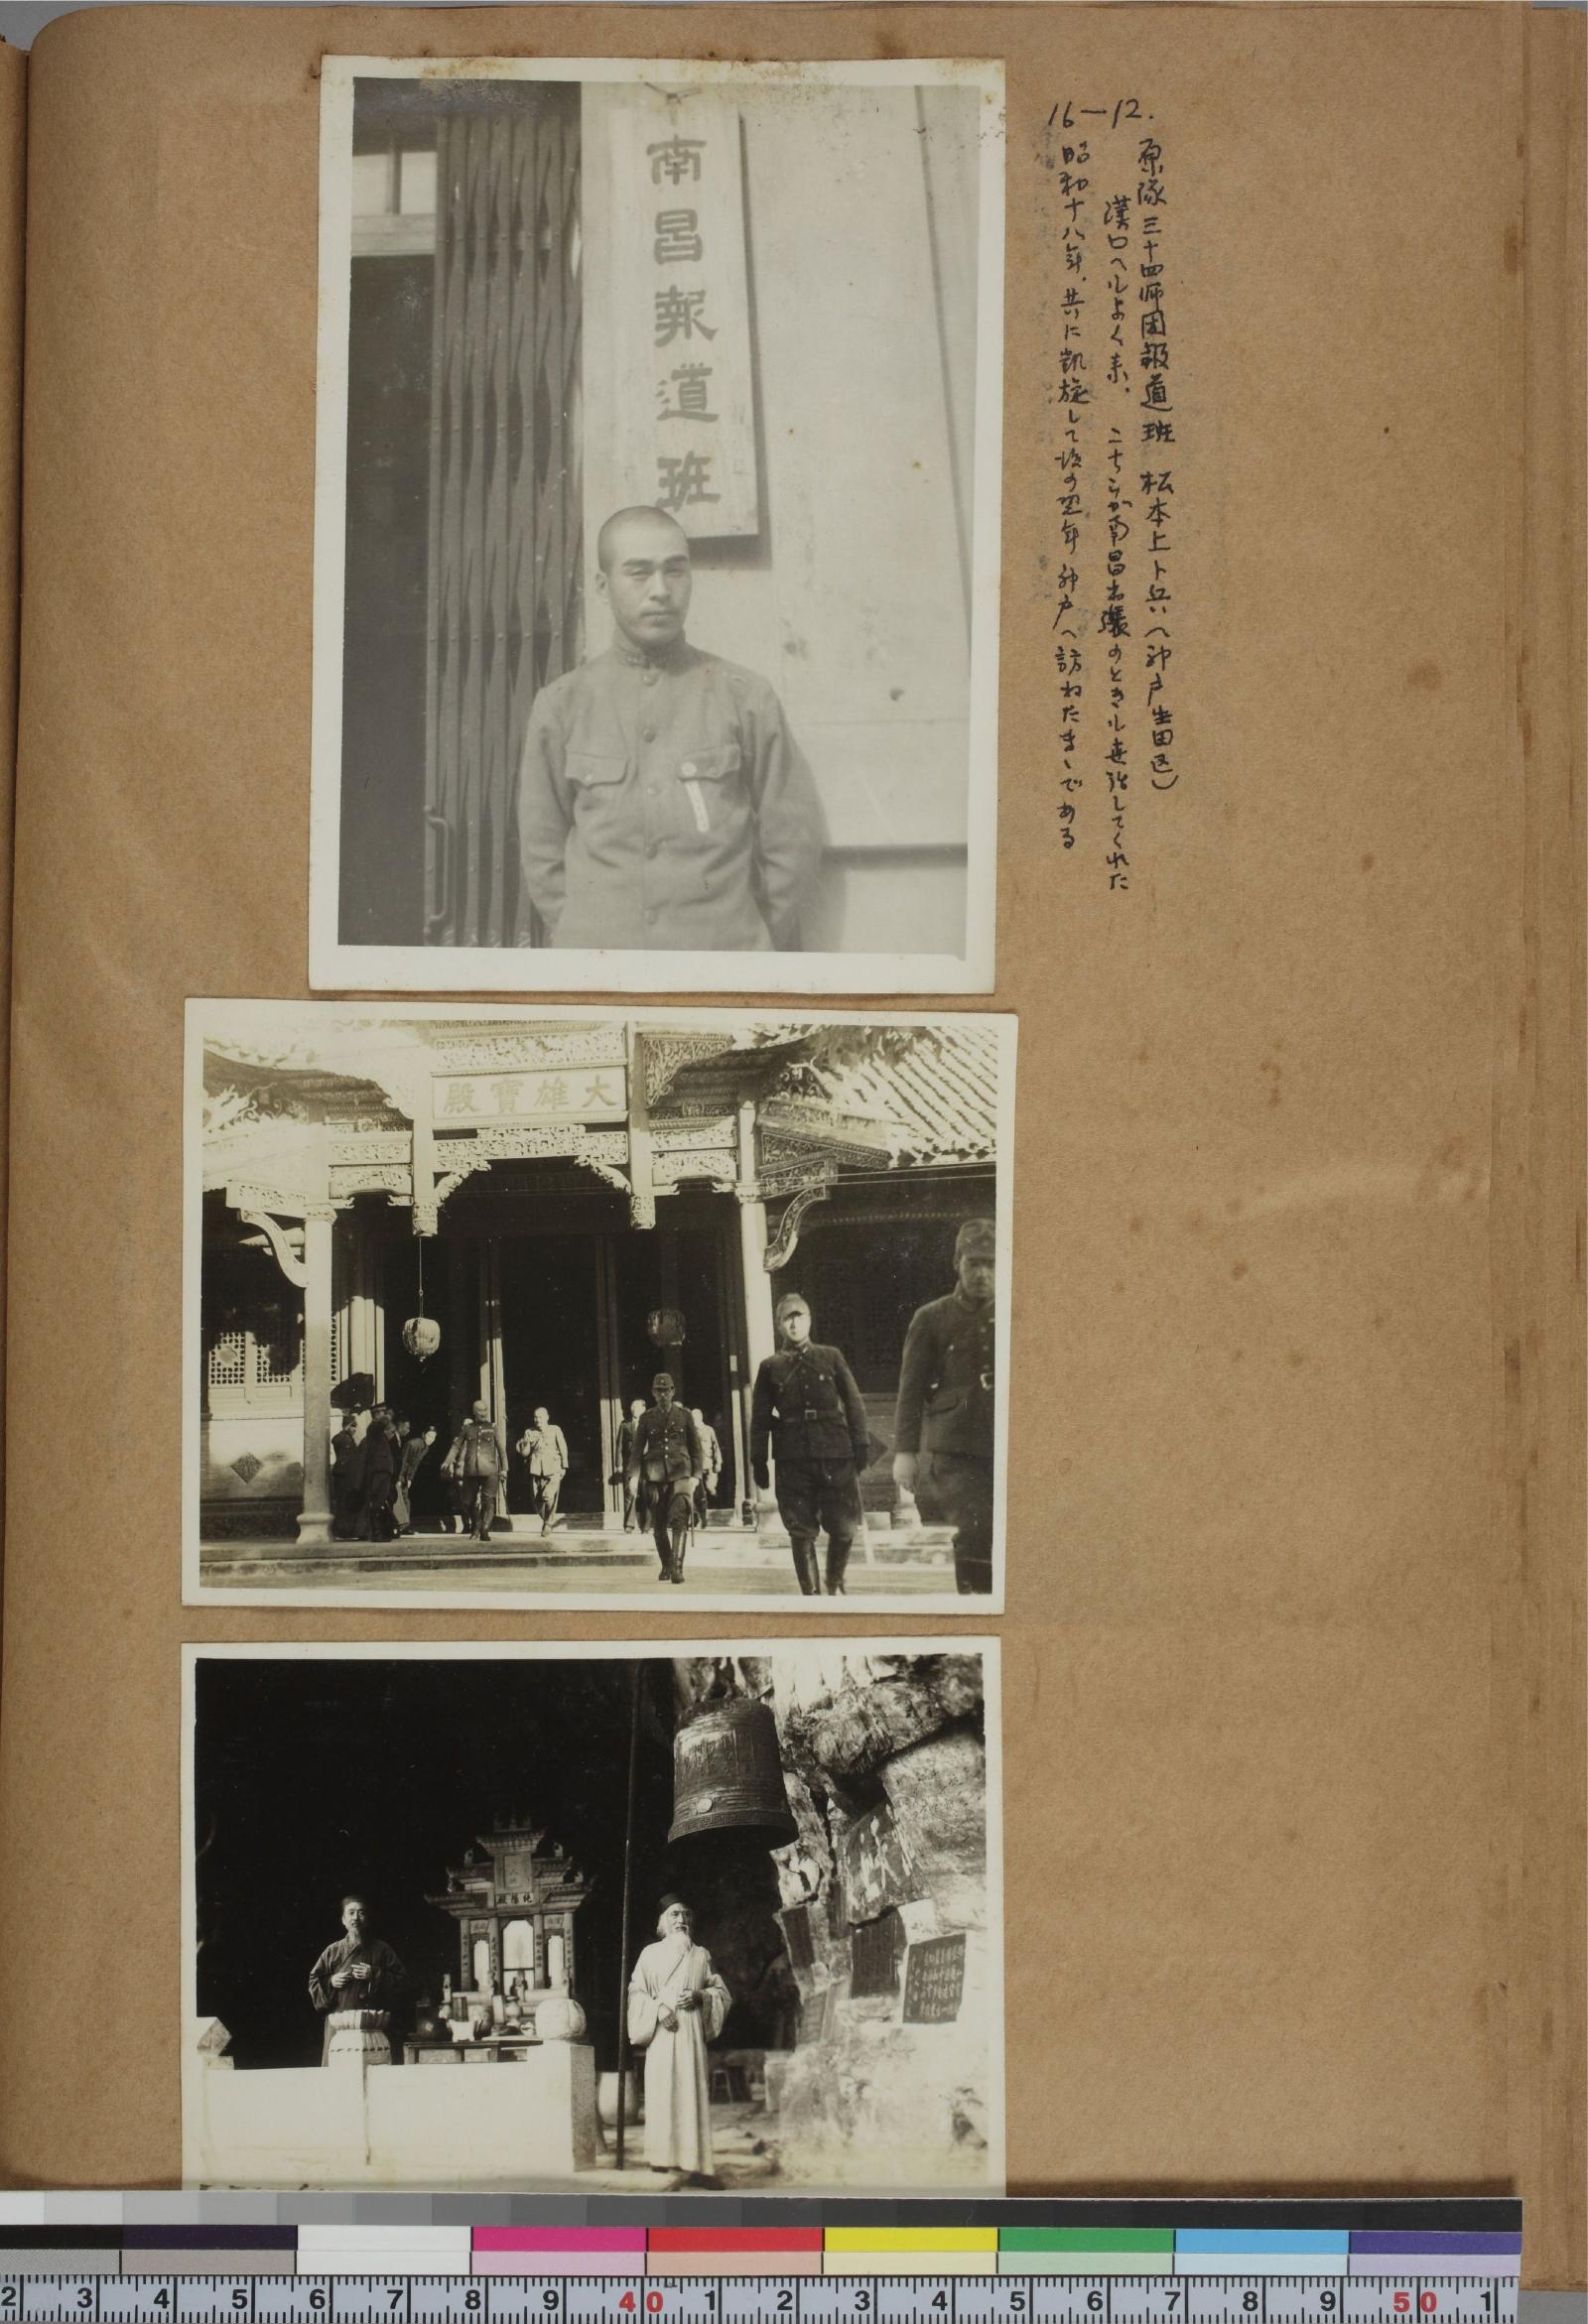 16-12.
原隊三十四師団報道班 松本上ト兵(神戸生田区)
漢口へもよく来、こちらが南昌出張のときも世話してくれた
昭和十八年、共に凱旋して後の翌年神戸へ訪ねたまゝである
南昌報道班
大雄寶殿
純陽殿
2 3 4 5 6 7 8 9 40 1 2 3 4 5 6 7 8 9 50 1